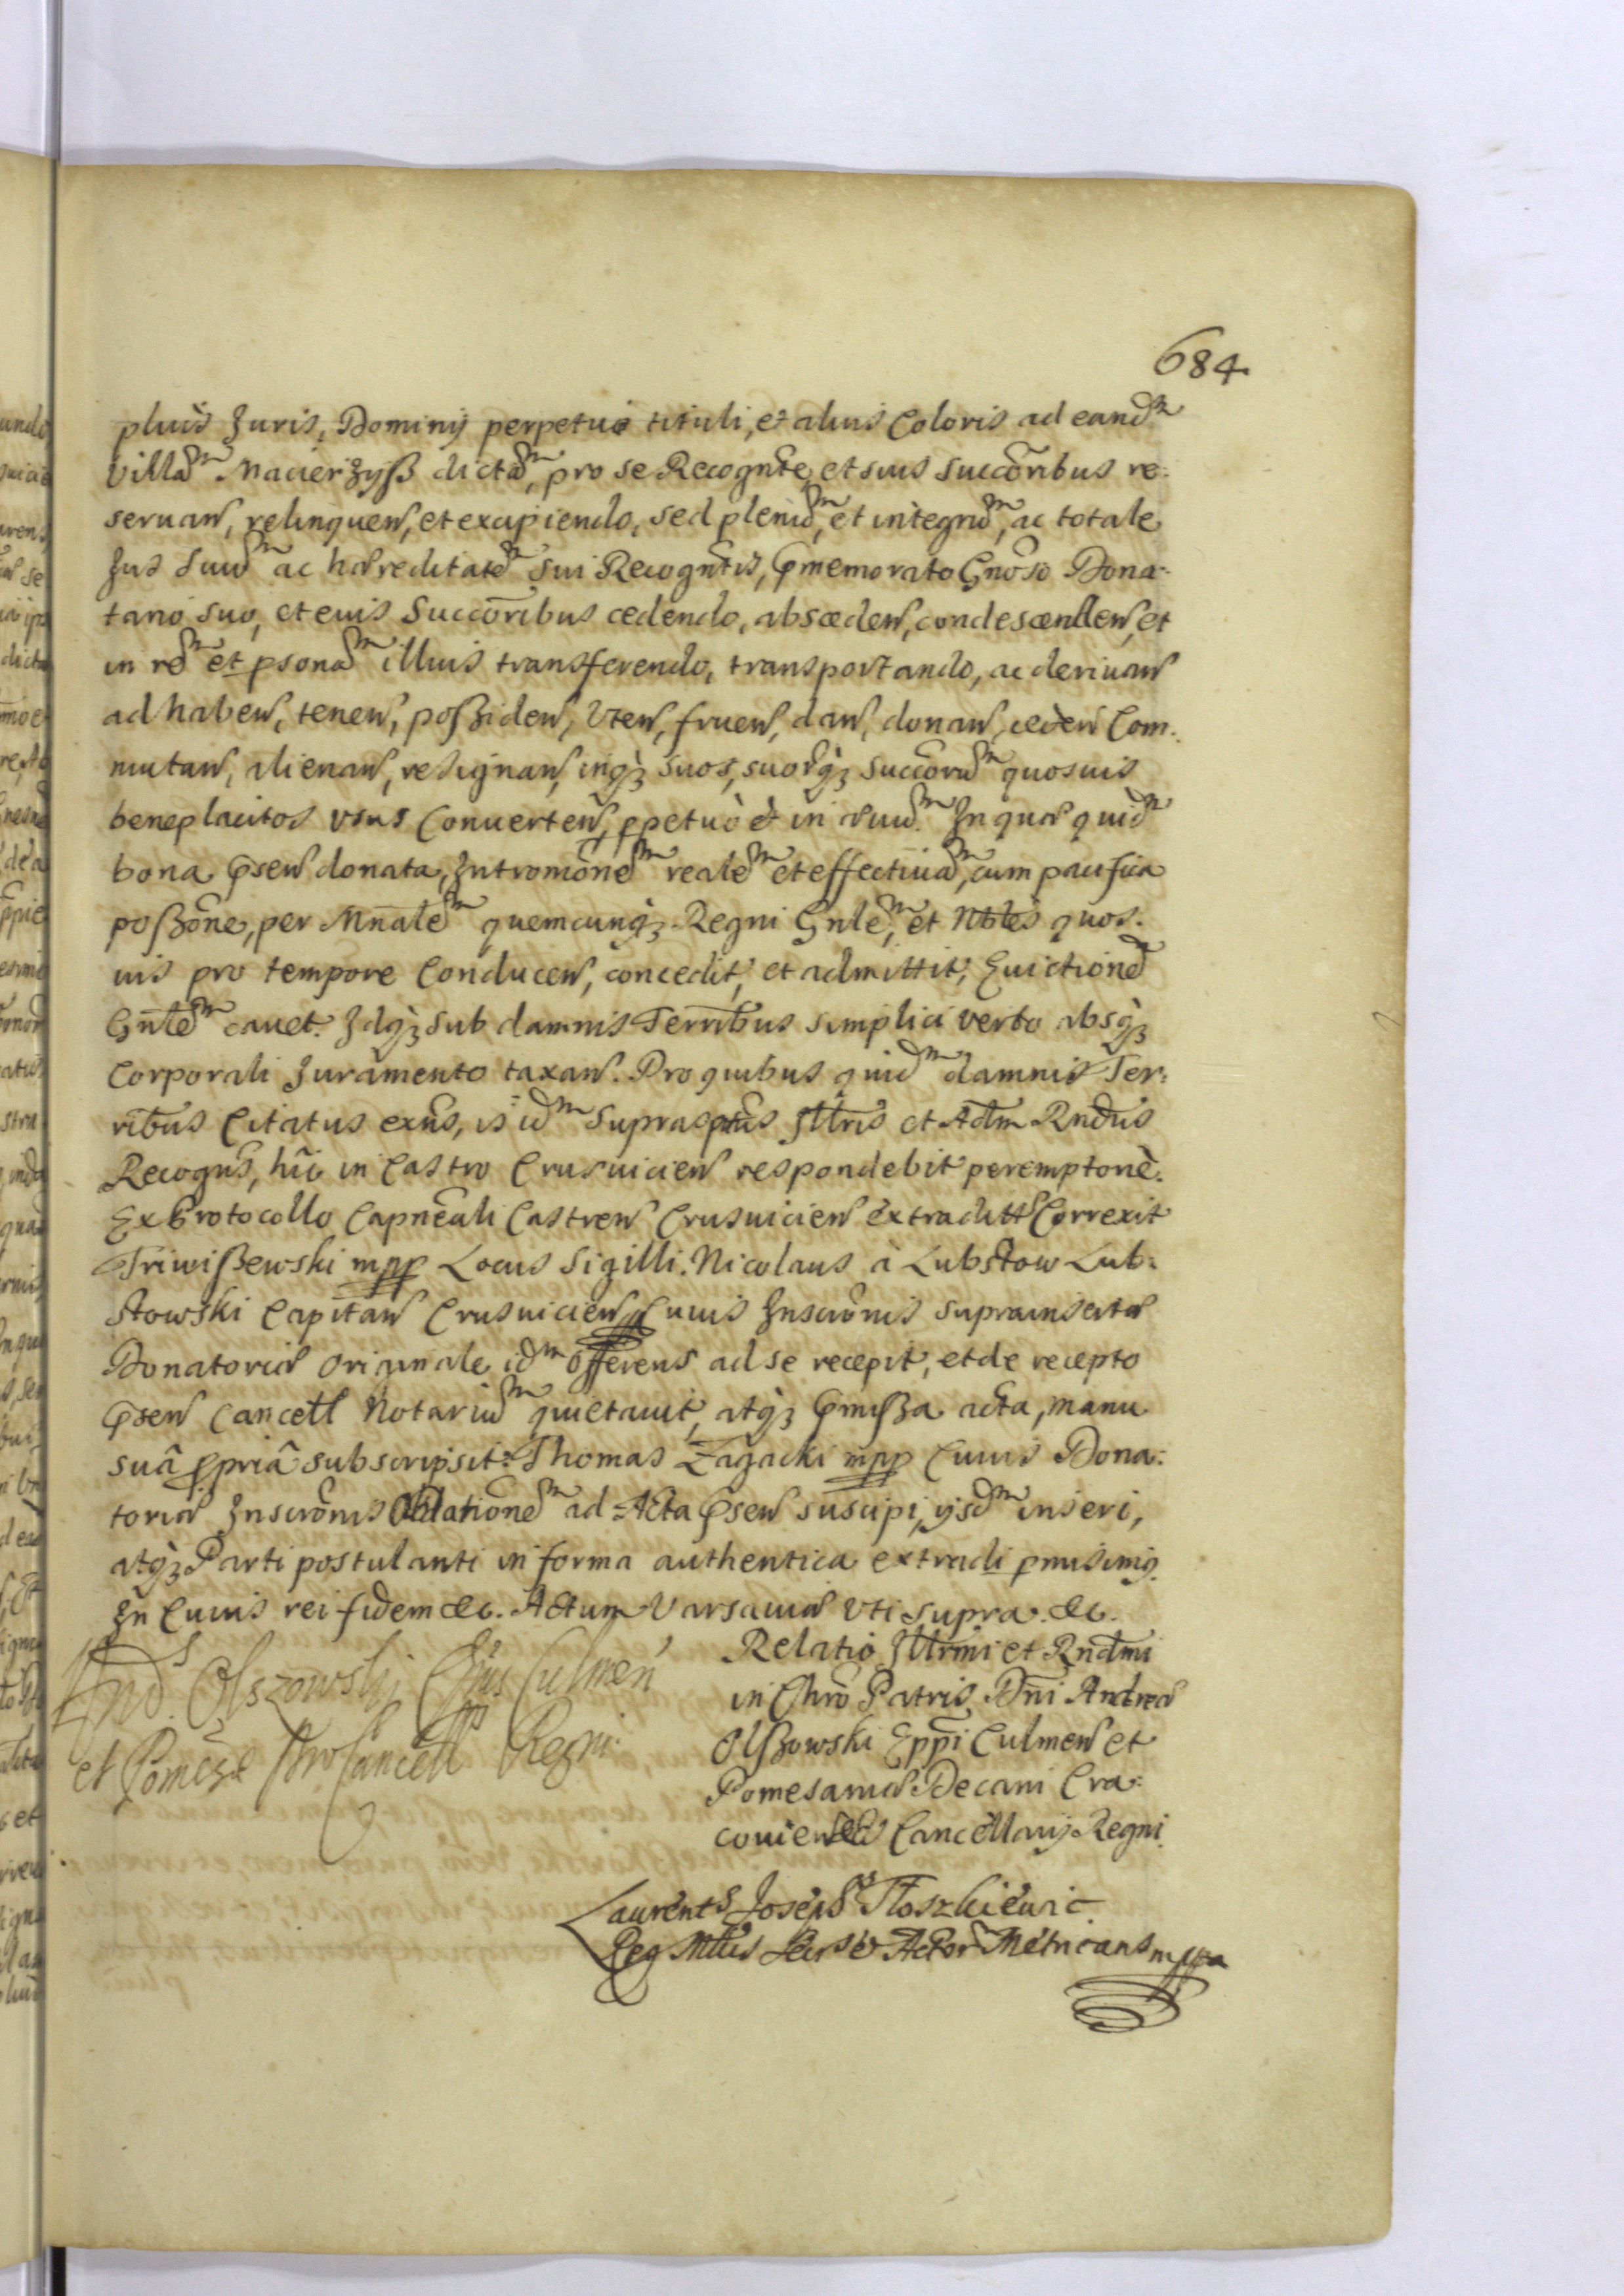 684.
pluris Juris, Dominij perpetui tituli, et alius Coloris ad eandem
Villam Macierzyß dictam, pro se Recognte et suis succoribus re:
seruan, relinquen, et excipiendo, sed plenum, et integrum, ac totale
Jus suum ac hæreditatem sui Recogntis, Pmemorato Gnoso Dona:
tario suo, et euis Succoribus cedendo, abscæden, condescænden, et
in rem et psonam illius transferendo, transportando, ac deriuan
ad haben, tenen, poßiden, Uten, fruen, dan, donan, ceden Com:
mutan, alienan, resignan, inq3 suos, suorq3 Succorum quosuis
beneplacitos usus Conuerten, ppetuò et in æuum. In quæ quidem
bona Psen donata, Intromonem realem et effectiuam, cum pacifica
poßone, per Mnalem quemcunq3 Regni Gnlem, et Nobles quos:
uis pro tempore Conducen, concedit, et admittit, Euictionem
Gnlem cauet. Idq3 sub damnis Terribus simplici verbo absq3
Corporali Juramento taxan. Pro quibus quidem damnis Ter:
ribus Citatus exns, is idem suprasptus Jllris et Adm Rndus
Recogns, hic in Castro Crusuicien respondebit peremptoriè.
Ex Protocollo Capneali Castren Crusuicien extraditt Correxit
Triwißewski mpp Locus Sigilli. Nicolaus à Lubstow Lub:
stowski Capitan Crusuicien Cuius Inscronis suprainsertæ
Donatoriæ originale idem Offerens ad se recepit, et de recepto
Psen Cancell Notarium quietauit, atq3 Pmißa acta, manu
suâ ppriâ subscripsit: Thomas Zagacki mpp Cuius Dona:
toriæ Inscronis Oblationem ad Acta Psen suscipi, ijsdem inseri,
atq3 Parti postulanti in forma authentica extradi pmisimq
In Cuius rei fidem &c. Actum Varsauiæ Uti supra. &c.
Relatio Jllrmi et Rndmi
in Chro Patris Dni Andreæ
Olßowski Eppi Culmen et
Pomesaniæ Decani Cra:
couien Cancellarij Regni
And. Olszowskj Epus Culmen
et Pomeze ProCancell Regni
Laurents Joseph Tloszkiewic
Reg Mttis Secrs & Actor Metricans mppa